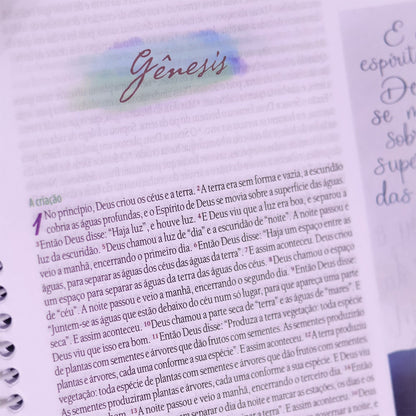 Gênesis
A criação
1 No princípio, Deus criou os céus e a terra. ²A terra era sem forma e vazia, a escuridão
cobria as águas profundas, e o Espírito de Deus se movia sobre a superfície das águas.
³Então Deus disse: "Haja luz", e houve luz. ⁴E Deus viu que a luz era boa, e separou a
luz da escuridão. ⁵Deus chamou a luz de "dia" e a escuridão de "noite". A noite passou e
veio a manhã, encerrando o primeiro dia. ⁶Então Deus disse: "Haja um espaço entre as
águas, para separar as águas dos céus das águas da terra". ⁷E assim aconteceu. Deus criou
um espaço para separar as águas da terra das águas dos céus. ⁸Deus chamou o espaço
de "céu". A noite passou e veio a manhã, encerrando o segundo dia. ⁹Então Deus disse:
"Juntem-se as águas que estão debaixo do céu num só lugar, para que apareça uma parte
seca". E assim aconteceu. ¹⁰Deus chamou a parte seca de "terra" e as águas de "mares". E
Deus viu que isso era bom. ¹¹Então Deus disse: "Produza a terra vegetação: toda espécie
de plantas com sementes e árvores que dão frutos com sementes. As sementes produzirão
plantas e árvores, cada uma conforme a sua espécie". E assim aconteceu. ¹²A terra produziu
vegetação: toda espécie de plantas com sementes e árvores que dão frutos com sementes.
As sementes produziram plantas e árvores, cada uma conforme a sua espécie. E Deus viu
¹³A noite passou e veio a manhã, encerrando o terceiro dia. ¹⁴Então
separar o dia da noite e marcar as estações, os dias e os
E o
espírit
De
se m
sob
supe
das